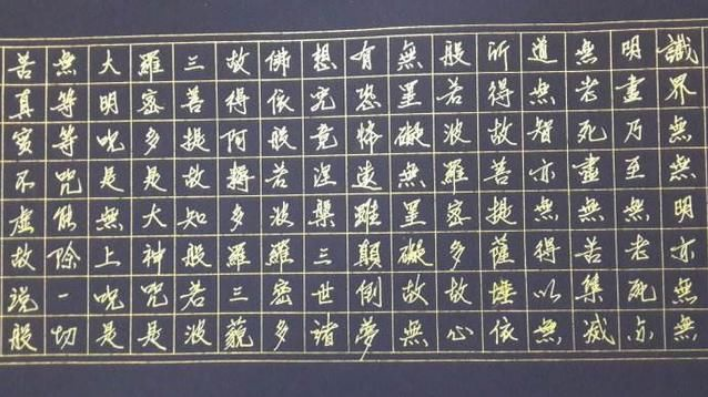 識界無無明亦無無
明盡乃至無老死亦
無老死盡無苦集滅
道無智亦無得以無
所得故菩提薩埵依
般若波羅密多故心
無罣礙無罣礙故無
有恐怖遠離顛倒夢
想究竟涅槃三世諸
佛依般若波羅密多
故得阿耨多羅三藐
三菩提故知般若波
羅密多是大神咒是
大明呪是無上呪是
無等等咒能除一切
苦真實不虛故說般